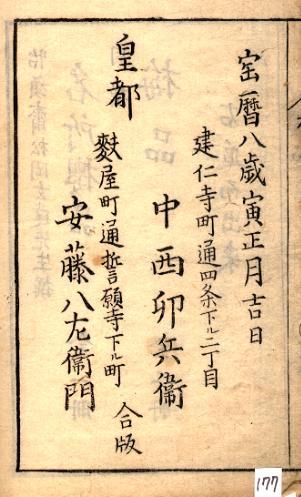 宝暦八歳寅正月吉日
建仁寺町通四条下ル二丁目
中西卯兵衛
皇都
麩屋町通誓願寺下ル町
安藤八左衛門
合版
177